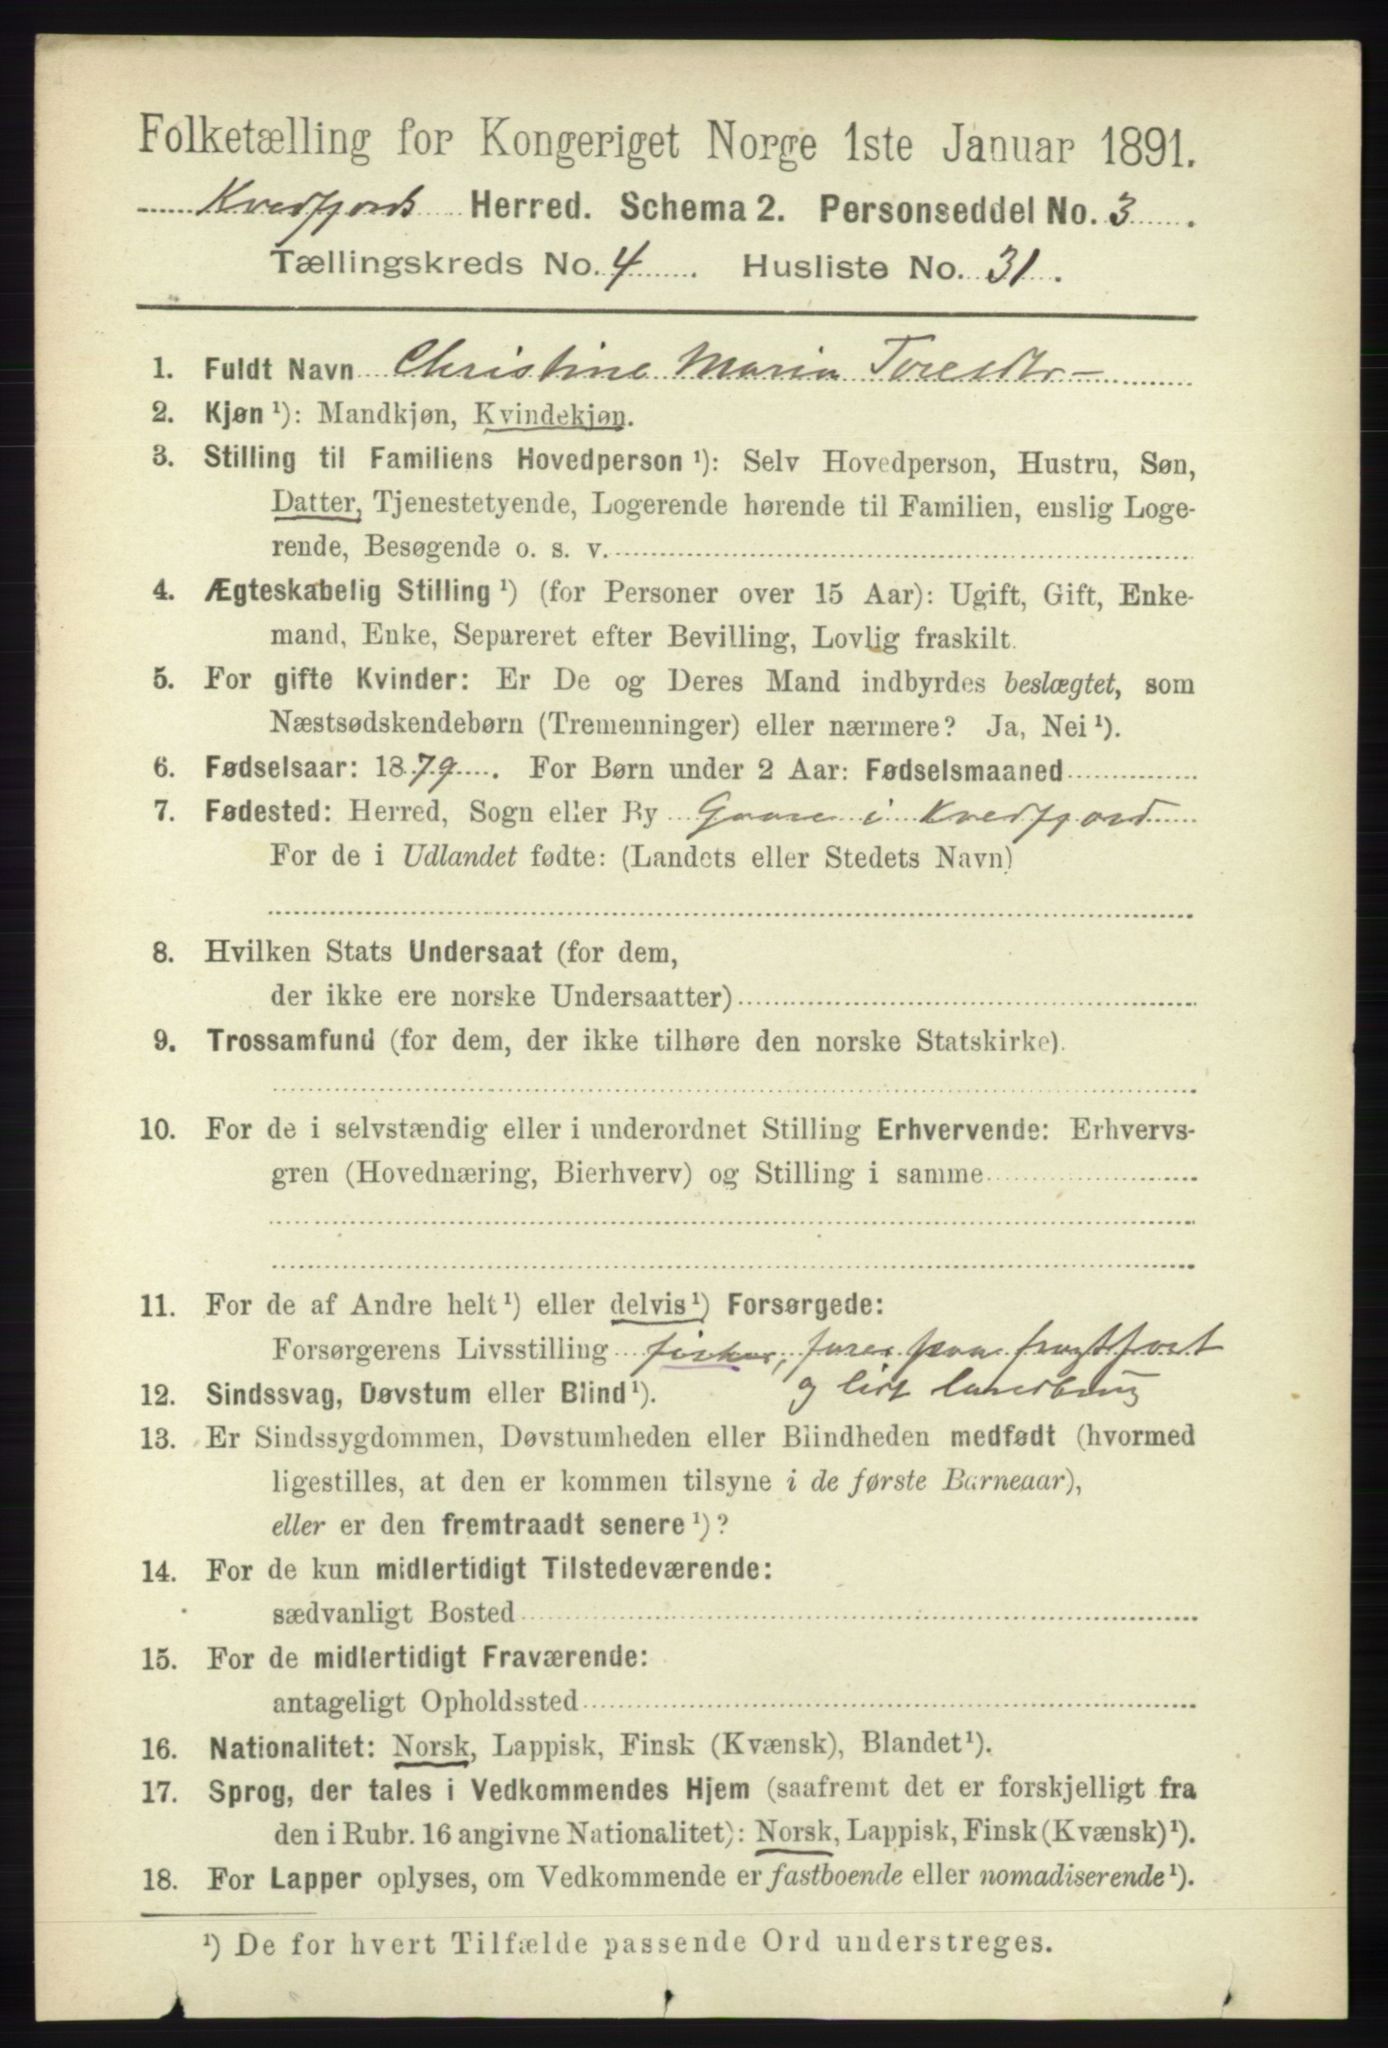 Folketælling for Kongeriget Norge 1ste Januar 1891.
Kvedfjords Herred. Schema 2. Personseddel No. 3.
Tællingskreds No. 4. Husliste No. 31.
1. Fuldt Navn Christine Maria Toresdtr
2. Kjøn ¹): Mandkjøn, Kvindekjøn.
3. Stilling til Familiens Hovedperson ¹): Selv Hovedperson, Hustru, Søn,
Datter, Tjenestetyende, Logerende hørende til Familien, enslig Loge-
rende, Besøgende o. s. v.
4. Ægteskabelig Stilling ¹) (for Personer over 15 Aar): Ugift, Gift, Enke-
mand, Enke, Separeret efter Bevilling, Lovlig fraskilt.
5. For gifte Kvinder: Er De og Deres Mand indbyrdes beslægtet, som
Næstsødskendebørn (Tremenninger) eller nærmere? Ja, Nei ¹).
6. Fødselsaar: 1879. For Børn under 2 Aar: Fødselsmaaned
7. Fødested: Herred, Sogn eller By Gaare i Kvedfjord
For de i Udlandet fødte: (Landets eller Stedets Navn)
8. Hvilken Stats Undersaat (for dem,
der ikke ere norske Undersaatter)
9. Trossamfund (for dem, der ikke tilhøre den norske Statskirke).
10. For de i selvstændig eller i underordnet Stilling Erhvervende: Erhvervs-
gren (Hovednæring, Bierhverv) og Stilling i samme
11. For de af Andre helt ¹) eller delvis ¹) Forsørgede:
Forsørgerens Livsstilling fisker, farer paa fragtfart
og lidt landbrug
12. Sindssvag, Døvstum eller Blind ¹).
13. Er Sindssygdommen, Døvstumheden eller Blindheden medfødt (hvormed
ligestilles, at den er kommen tilsyne i de første Barneaar),
eller er den fremtraadt senere ¹)?
14. For de kun midlertidigt Tilstedeværende:
sædvanligt Bosted
15. For de midlertidigt Fraværende:
antageligt Opholdssted
16. Nationalitet: Norsk, Lappisk, Finsk (Kvænsk), Blandet ¹).
17. Sprog, der tales i Vedkommendes Hjem (saafremt det er forskjelligt fra
den i Rubr. 16 angivne Nationalitet): Norsk, Lappisk, Finsk (Kvænsk) ¹).
18. For Lapper oplyses, om Vedkommende er fastboende eller nomadiserende ¹).
¹) De for hvert Tilfælde passende Ord understreges.